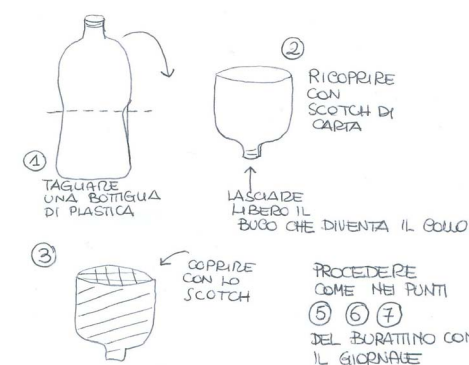 ①
TAGLIARE
UNA BOTTIGLIA
DI PLASTICA
②
RICOPRIRE
CON
SCOTCH DI
CARTA
LASCIARE
LIBERO IL
BUCO CHE DIVENTA IL COLLO
③
COPRIRE
CON LO
SCOTCH
PROCEDERE
COME NEI PUNTI
⑤ ⑥ ⑦
DEL BURATTINO CON
IL GIORNALE